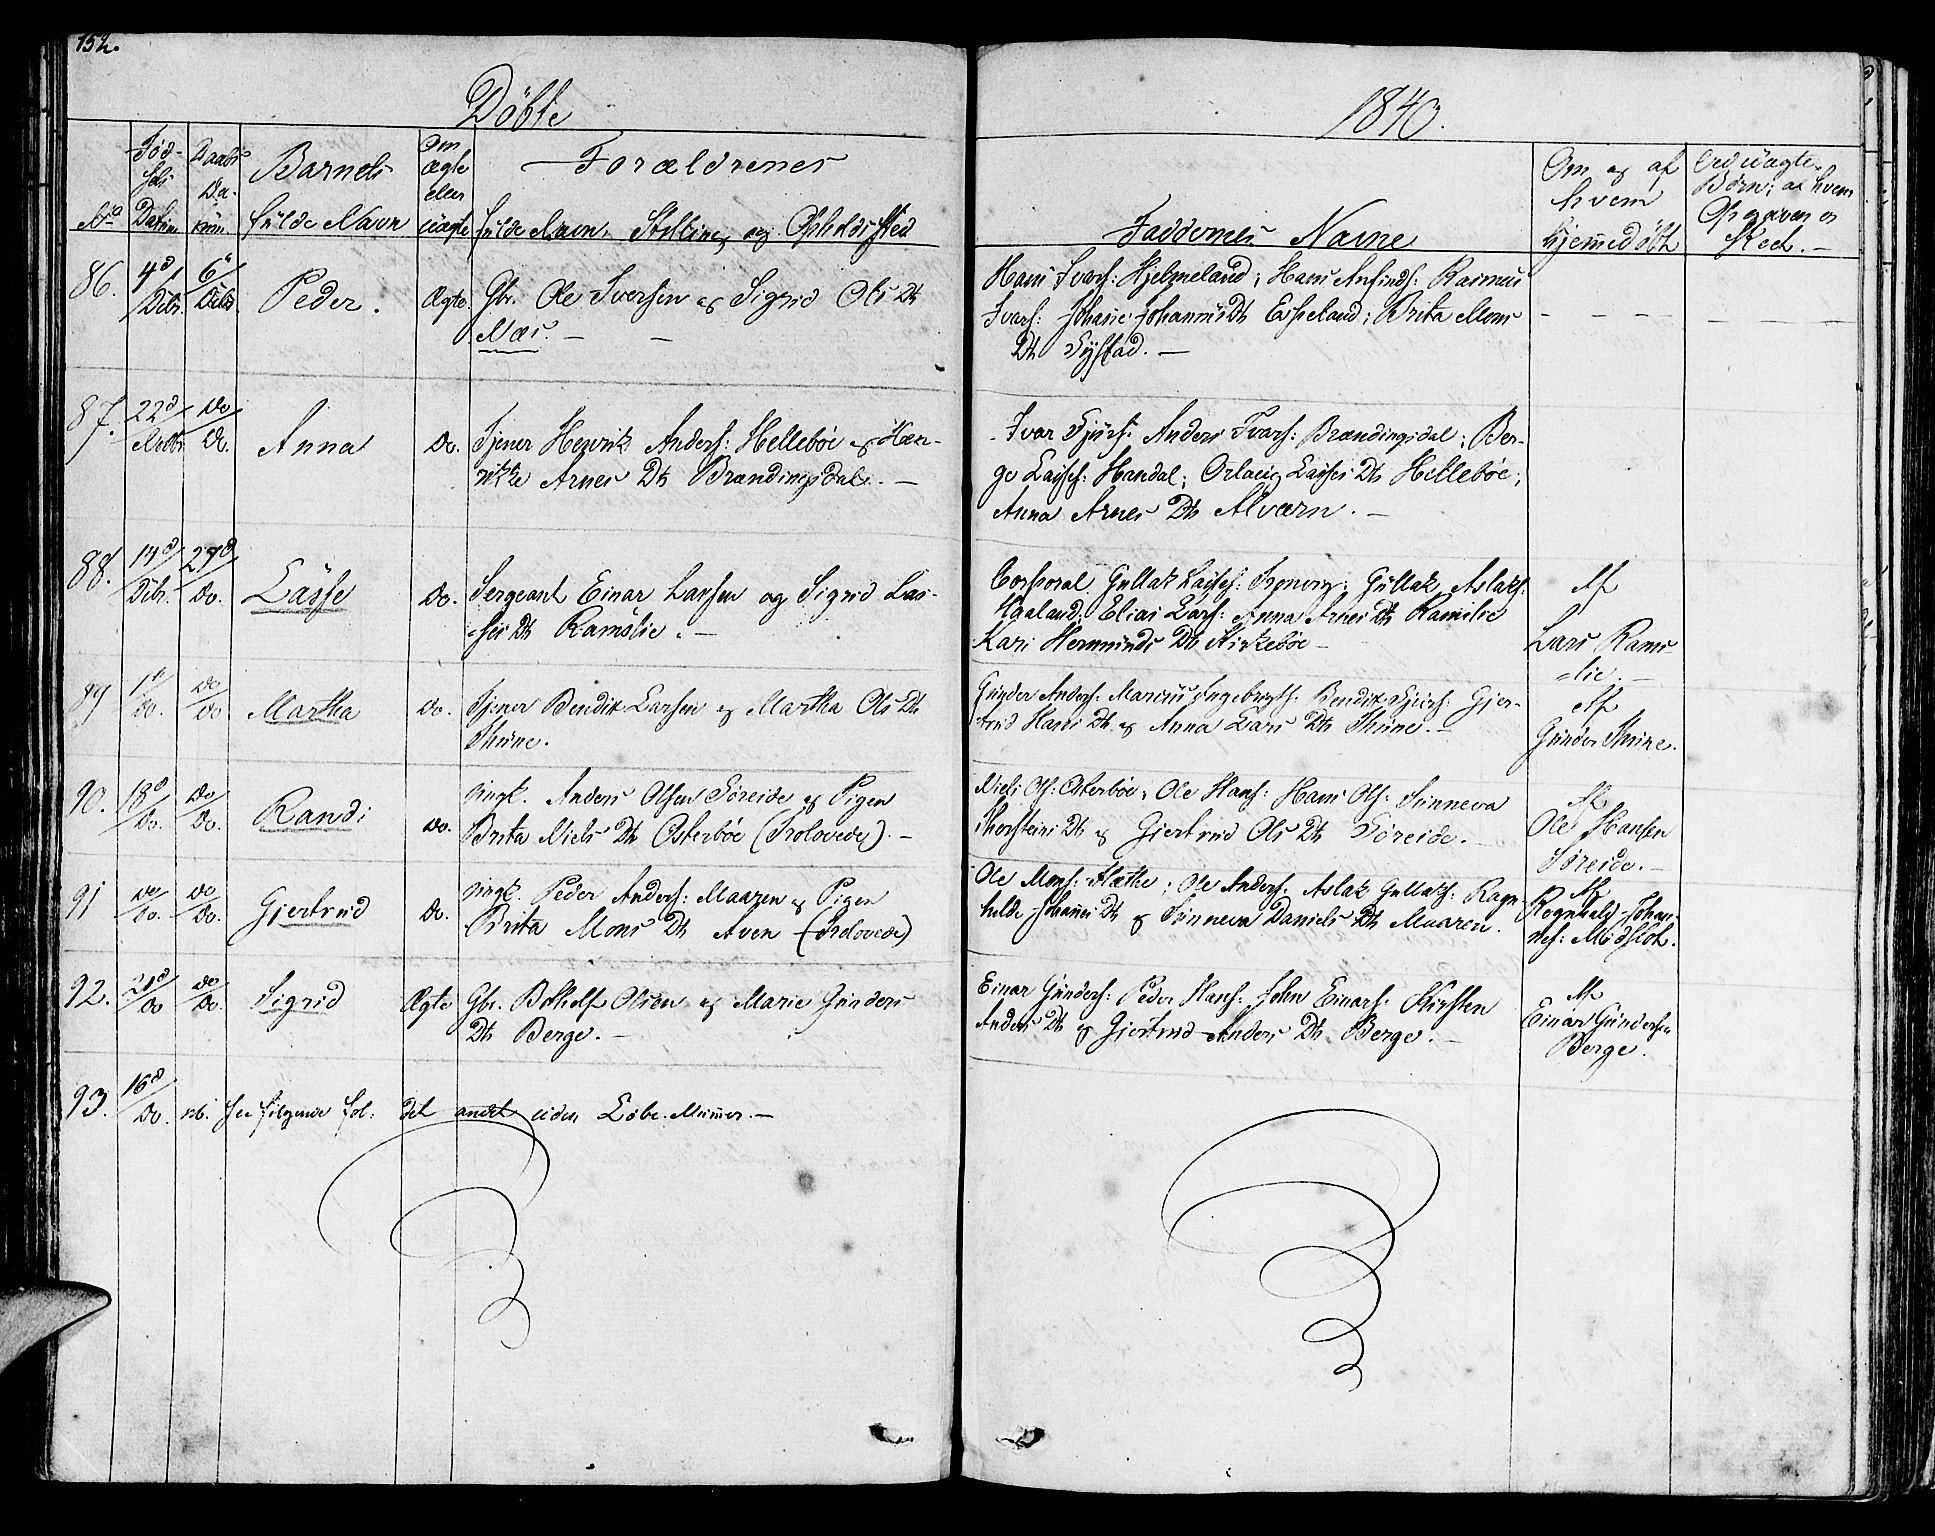 152.
Döbte
1840.
No
Fød-
sels
Datum
Daabs
Da-
tum
Barnets
fulde Navn
Om
ægte
eller
uægte
Forældrenes
fulde Navn, Stilling og Opholds Sted
Faddernes Navne
Om og af
hvem
hjemmedøbt
Ved uægte
Børn; af hvem
Opgaven er
Skeet.
86. 4d/Decbr. 6te/Decbr. Peder. Ægte. Gbr. Ole Iversen og Sigrid Ols Dtr
Næs. —
Hans Ivars: Hjelmeland; Hans Anfinds: Rasmus
Ivars: Johanne Johannes Dtr Espeland; Brita Mons
Dtr Systad. —
87. 22d/Novbr Do/Do. Anna Do. Tjener Henrik Anders: Hellebøe og Hen-
rikke Arnes Dtr Brændingsdal. —
Ivar Sjurs: Anders Ivars: Brændingsdal; Ber-
ge Lasses: Handal; Orlaug Lasses Dtr Hellebøe;
Anna Arnes Dtr Alværn. —
88. 14d/Decbr. 27d/Do. Lasse Do. Sergeant Einar Larsen og Sigrid Las-
ses Dtr Ramslie. —
Corporal Gullak Lasses: Gullak Aslaks:
Haaland; Elias Lars: Anna Arnes Dtr Ramslie
Kari Hermunds Dtr Kirkebøe —
Af
Lars Rams-
lie. —
89 1te/Do. Do/Do Martha Do. Tjener Bendik Larsen og Martha Ols Dtr
Thune.
Gunder Anders: Marcus Ingebrigts: Bendik Sjurs: Gjer-
trud Hans Dtr og Anna Lars Dtr Thune. —
Af
Gunder Thune.
90. 18d/Do. Do/Do. Randi Do. Ungk. Anders Olsen Søreide og Pigen
Brita Niels Dtr Østerbøe (Trolovede). —
Niels Ols: Østerbøe; Ole Hans: Hans Ols: Sunneva
Thorsteins Dtr og Gjertrud Ols Dtr Søreide. —
Af
Ole Hansen
Søreide. —
91 Do/Do. Do/Do. Gjertrud Do. Ungk. Peder Anders: Maaren og Pigen
Brita Mons Dtr Aven (Trolovede)
Ole Mons: Slæthe; Ole Anders: Aslak Gullaks: Ragn-
hilde Johannes Dtr og Sunneva Daniels Dtr Maaren.
Af
Rognald Johan-
nes: Midflot.
92. 21d/Do Do/Do. Sigrid Ægte Gbr. Botholf Olsen og Marie Gunders
Dtr Berge. —
Einar Gunders: Peder Hans: John Einars: Kirsten
Anders Dtr og Gjertrud Anders Dtr Berge. —
Af
Einar Gundersen
Berge.
93. 16d/Do. nb. See følgende fol: det andet uden Løbe-Nummer. —